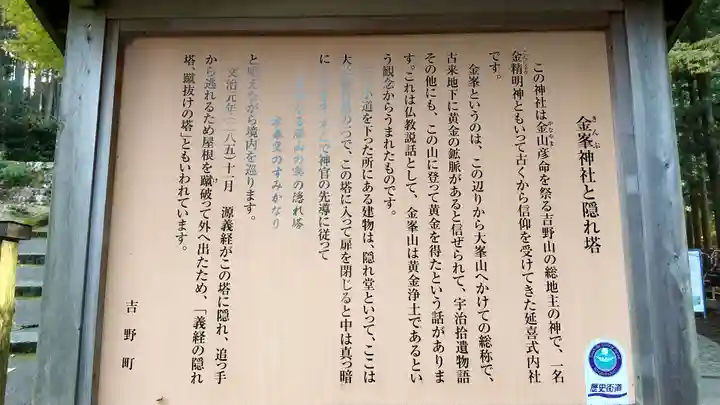 金峯神社と隠れ塔
きんぷ
この神社は金山彦命を祭る吉野山の総地主の神で、一名
金精明神ともいって古くから信仰を受けてきた延喜式内社
です。
金峯というのは、この辺りから大峯山へかけての総称で、
古来地下に黄金の鉱脈があると信ぜられて、宇治拾遺物語
その他にも、この山に登って黄金を得たという話がありま
す。これは仏教説話として、金峯山は黄金浄土であるとい
う観念からうまれたものです。
道を下った所にある建物は、隠れ堂といって、ここは
大 つで、この塔に入って扉を閉じると中は真っ暗
に で神官の先導に従って
の隠れ塔
のすみかなり
と唱えながら境内を巡ります。
文治元年(一一八五)十一月 源義経がこの塔に隠れ、追っ手
から逃れるため屋根を蹴破って外へ出たため、「義経の隠れ
塔、蹴抜けの塔」ともいわれています。
吉野町
歴史街道